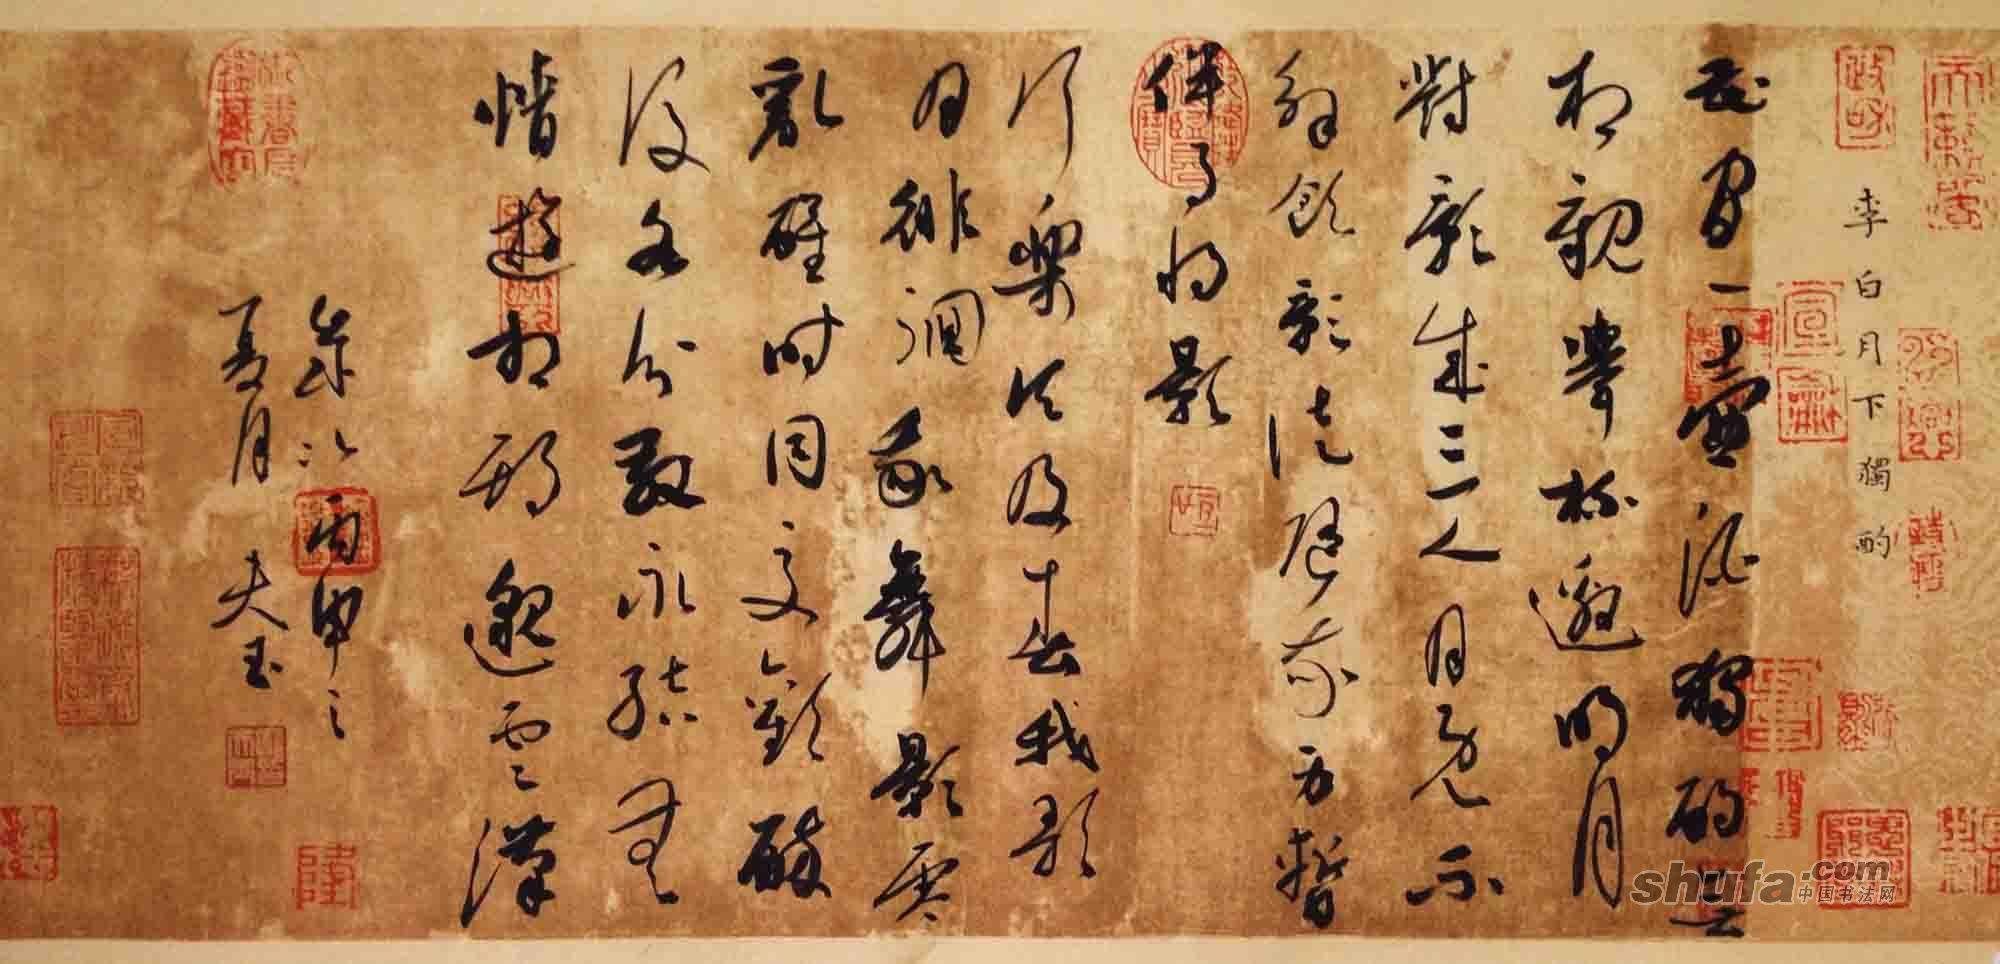 李白月下獨酌
花間一壺酒獨酌無
相親舉杯邀明月
對影成三人月既不
解飲影徒隨我身暫
伴月將影
行樂須及春我歌
月徘徊我舞影零
亂醒時同交歡醉
後各分散永結無
情遊相期邈雲漢
歲次丙申之
夏月 夫玉
shufa.com
中国书法网